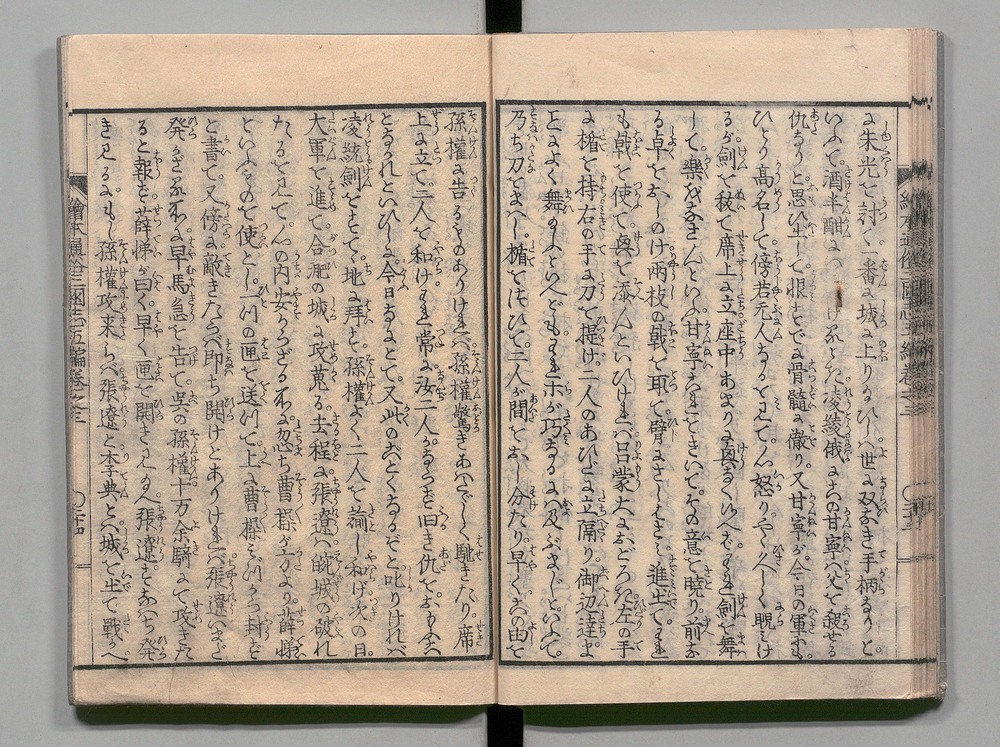 に朱光を討て一番に城に上りたるひしへ世に双なき手柄なりと
いふて酒半酣に けるとき凌統俄にこの甘寧は父を殺せる
仇なりと思ひ出して恨すでに骨髄に徹り又甘寧が今日の軍に
ひとり高名して傍若無人なるを見て心怒りやゝ久しく睨つけ
るが剣を抜て席上に立座中あまりに興なく候へばそれ剣を舞
して楽をなさんといふ甘寧これをきいてその意を暁り前な
る卓をおしのけ両枝の戟を取て臂にさしはさみ進出てそれ
も戟を使て興を添んといひければ呂蒙大におどろき左の手
に楯を持右の手に刀を提け二人のあひだに立隔り御辺達に
よく舞のといへどもそれホが巧なるには及ぶまじといふて
乃ち刀をまはし楯をつかひて二人が間をおし分たり早くこの由を
孫権に告るものありければ孫権驚きあはてゝ馳きたり席
上に立て二人を和けそれ常に汝二人がなつを旧き仇をおもふこ
となかれといひしに今日なにとて又此のごとくなるぞと叱りければ
凌統剣をすてゝ地に拝す孫権よく二人を諭し和け次の日
大軍を進て合肥の城に攻蒐る去程に張遼は皖城の破れ
たるを見て心の内安からざる所に忽ち曹操が方より薛悌
といふものを使として一つの匣を送りて上に曹操みづから封ど
と書て又傍に敵きたらば即ち開けとありければ張遼いまだ
発かざる所に早馬急を告て呉の孫権十万余騎にて攻きた
ると報ず薛悌が曰く早く匣を開き見ん張遼すなはち発
き見るにもし孫権攻来らば張遼と李典とは城を出て戦ふべ
繪本通俗三國志五編巻之三
○廿四